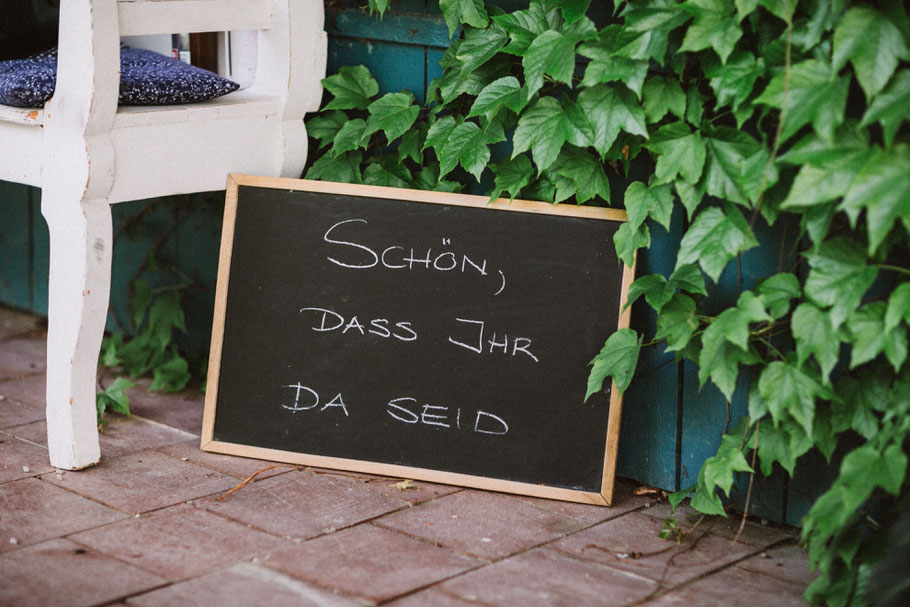 SCHÖN,
DASS IHR
DA SEID